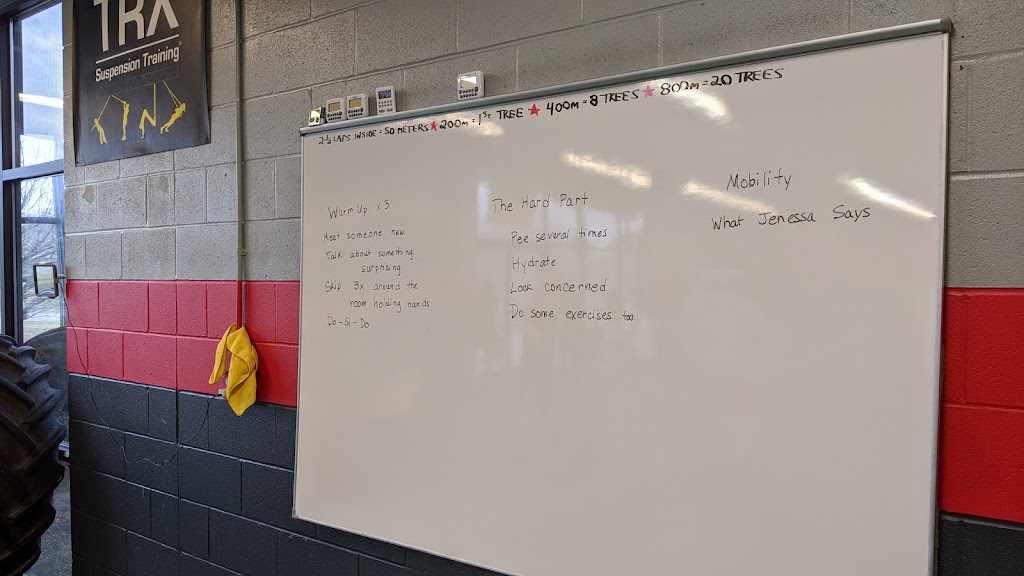 TRX
Suspension Training
2½ LAPS INSIDE = 50 METERS ★ 200m = 1st TREE ★ 400m = 8 TREES ★ 800m = 20 TREES
Warm Up x 3
Meet someone new
Talk about something
surprising
Skip 3x around the
room holding hands
Do-Si-Do
The Hard Part
Pee several times
Hydrate
Look concerned
Do some exercises too.
Mobility
What Jenessa Says